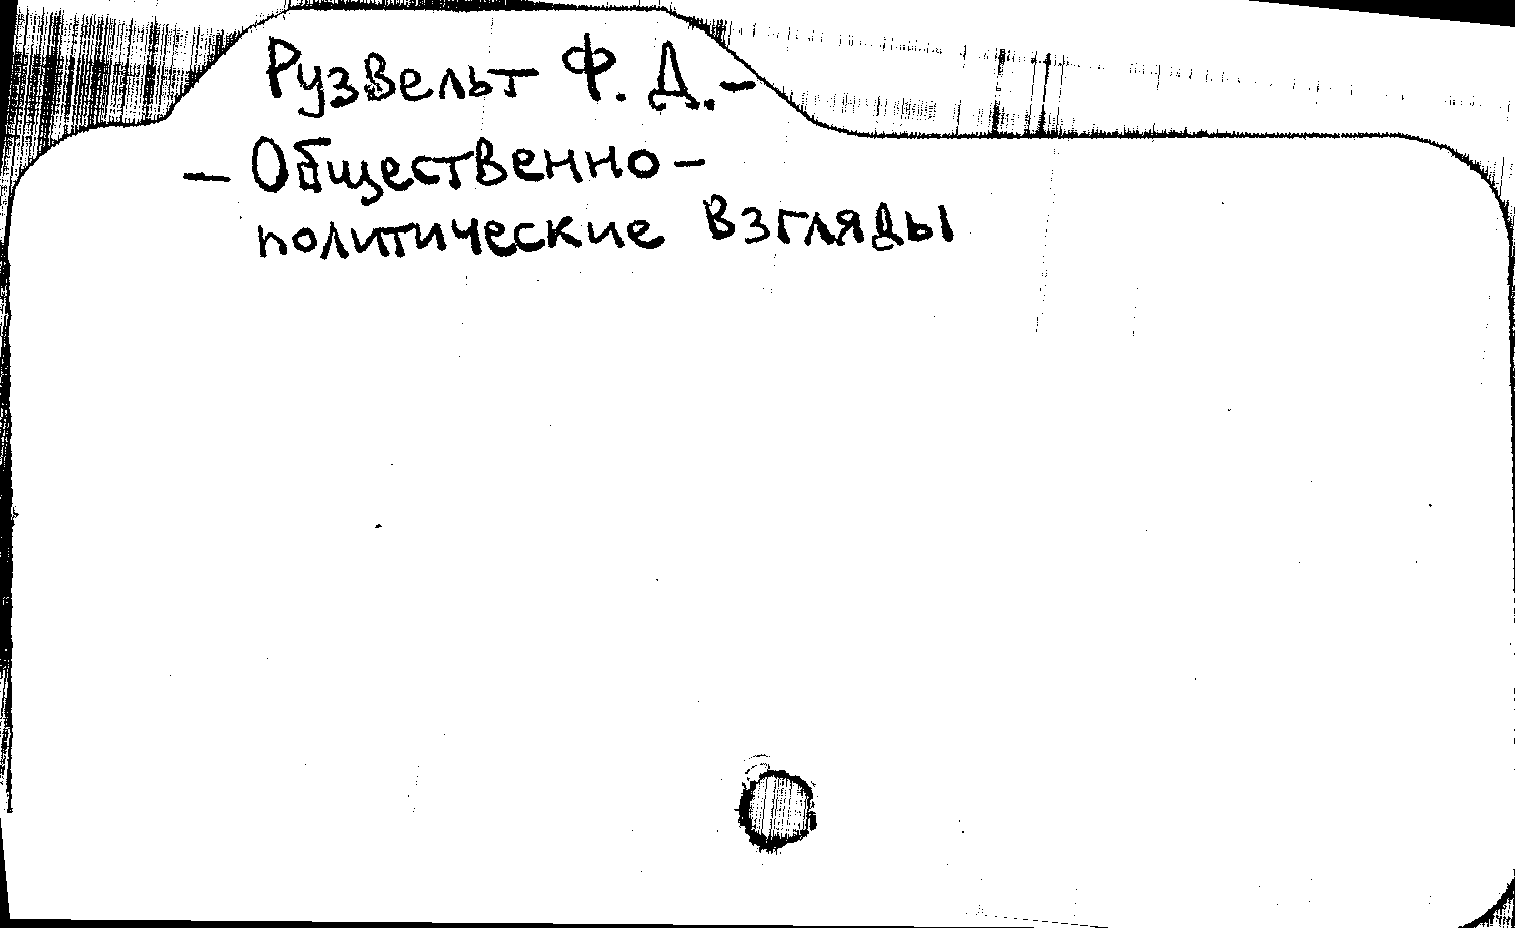 Рузвельт Ф. Д. -
- Общественно -
политические взгляды